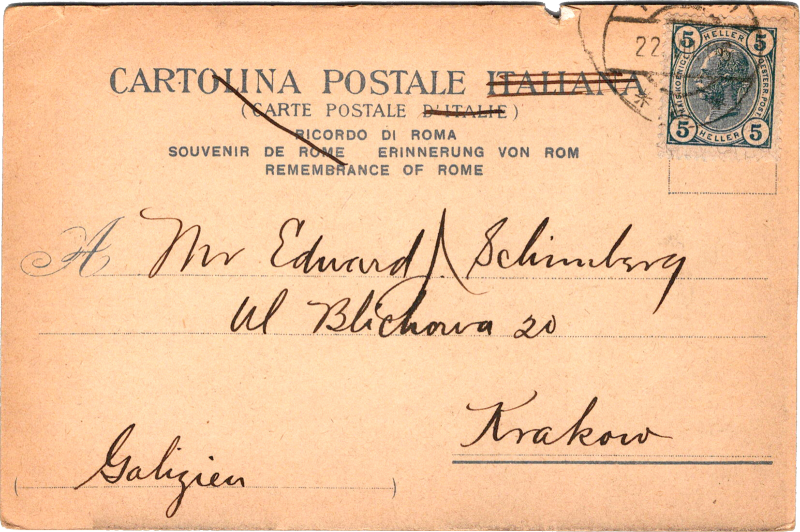 CARTOLINA POSTALE ITALIANA
(CARTE POSTALE D'ITALIE)
RICORDO DI ROMA
SOUVENIR DE ROME ERINNERUNG VON ROM
REMEMBRANCE OF ROME
22
5 HELLER 5
5 HELLER 5
A Mr Edward Schimberg
Ul Blichowa 20
Krakow
(Galizien)